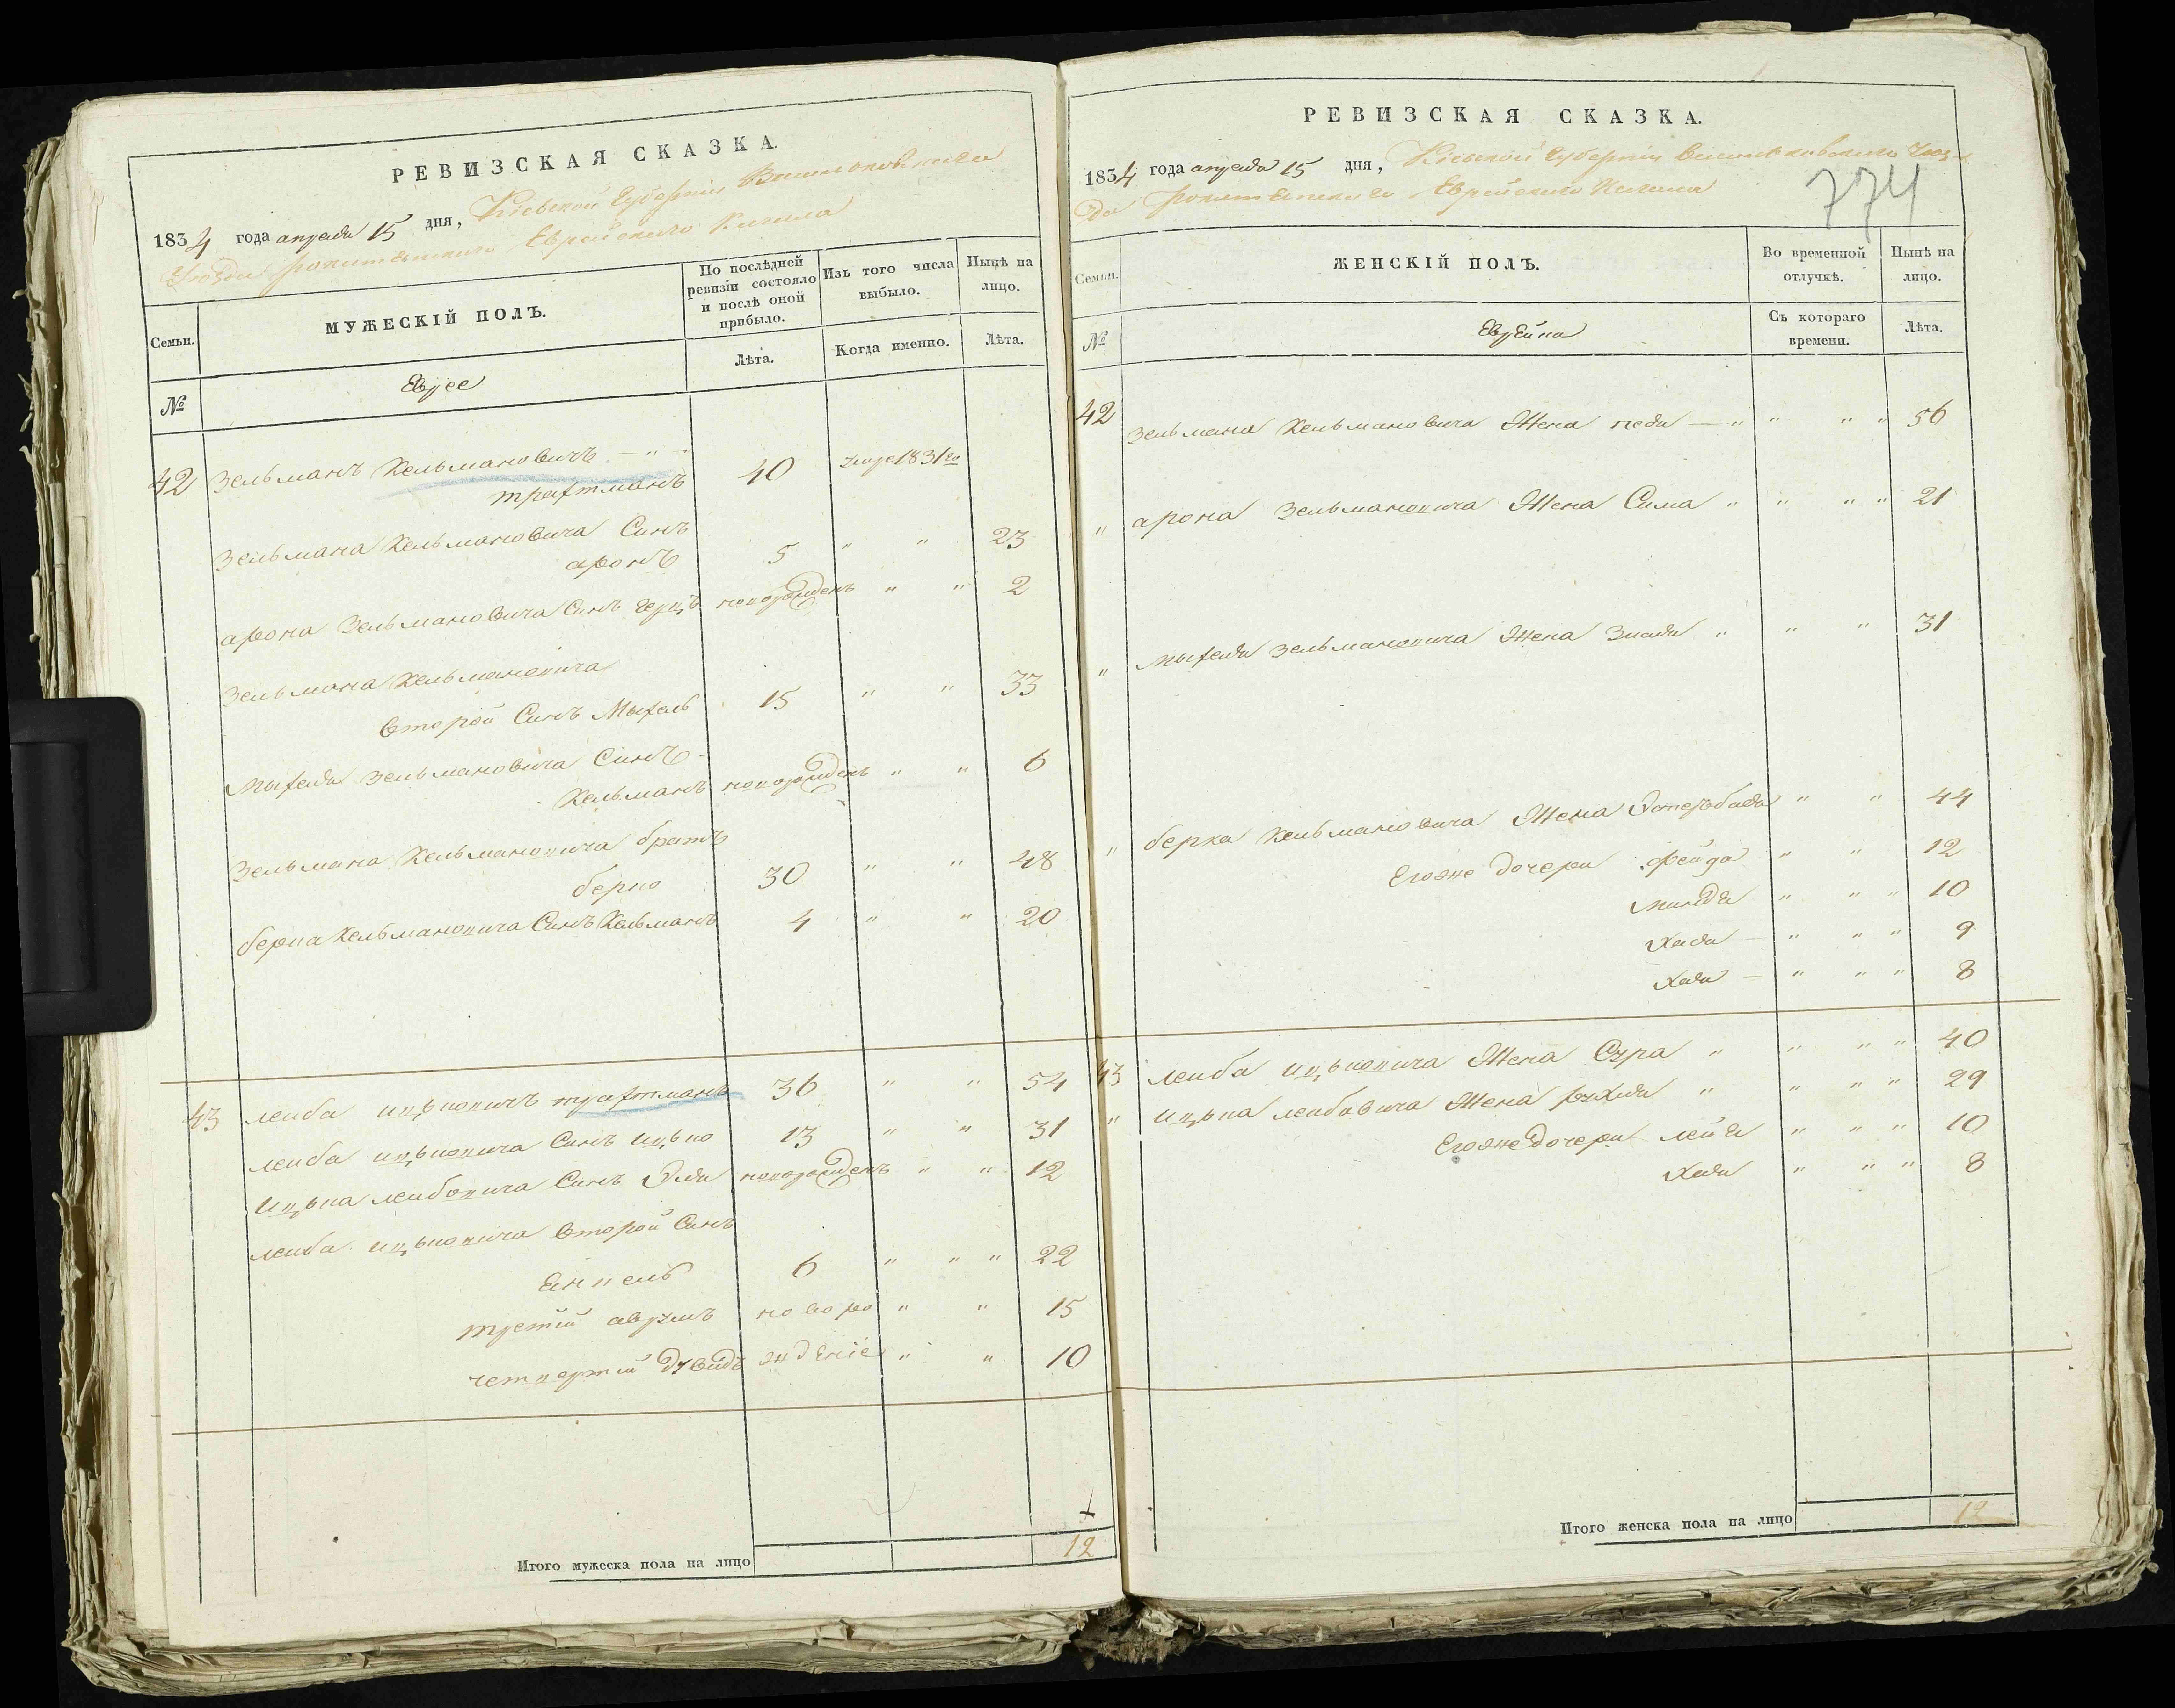 РЕВИЗСКАЯ СКАЗКА.
1834 года апреля 15 дня, Кіевской Губерніи Васильковскаго
Уѣзда Рокитянскаго Еврейскаго Кагала
Семьи.
МУЖЕСКІЙ ПОЛЪ.
По послѣдней
ревизіи состояло
и послѣ оной
прибыло.
Изъ того числа
выбыло.
Нынѣ на
лицо.
№
Лѣта.
Когда именно.
Лѣта.
Евреи
42 Зельманъ Кельмановичъ — "
трахтманъ 40 умре 1831го
Зельмана Кельмановича Синъ
аронъ 5 " " 23
арона Зельмановича Синъ герцъ новорожденъ " " 2
Зельмана Кельмановича
Второй Синъ Мыхель 15 " " 33
Мыхеля Зельмановича Синъ
Кельманъ новорожденъ " " 6
Зельмана Кельмановича братъ
берко 30 " " 48
берка Кельмановича Синъ Кельманъ 4 " " 20
43 лейба ицьковичъ трахтманъ 36 " " 54
лейба ицьковича Синъ ицько 13 " " 31
ицька лейбовича Синъ Эля новорожденъ " " 12
лейба ицьковича Второй Синъ
Енкель 6 " " " 22
третій аврумъ новоро " " 15
четвертій Дувидъ жденіе " " 10
Итого мужеска пола на лицо 12
РЕВИЗСКАЯ СКАЗКА.
774
1834 года апреля 15 дня, Кіевской Губерніи Васильковскаго Уѣз
да Рокитянскаго Еврейскаго Кагала
Семьи.
ЖЕНСКІЙ ПОЛЪ.
Во временной
отлучкѣ.
Нынѣ на
лицо.
№
Съ котораго
времени.
Лѣта.
Еврейки
42 Зельмана Кельмановича Жена неда — " " " " 56
" арона Зельмановича Жена Сима " " " " 21
" Мыхеля Зельмановича Жена Злата " " " 31
" берка Кельмановича Жена " " 44
Егоже дочери фейга " " 12
минда " " " 10
" " " 9
Хая — " " " 8
43 лейба ицьковича Жена Сура " " " " 40
" ицька лейбовича Жена рухля " " " " 29
Егоже дочери лея " " " 10
Хая " " " 8
Итого женска пола на лицо 12